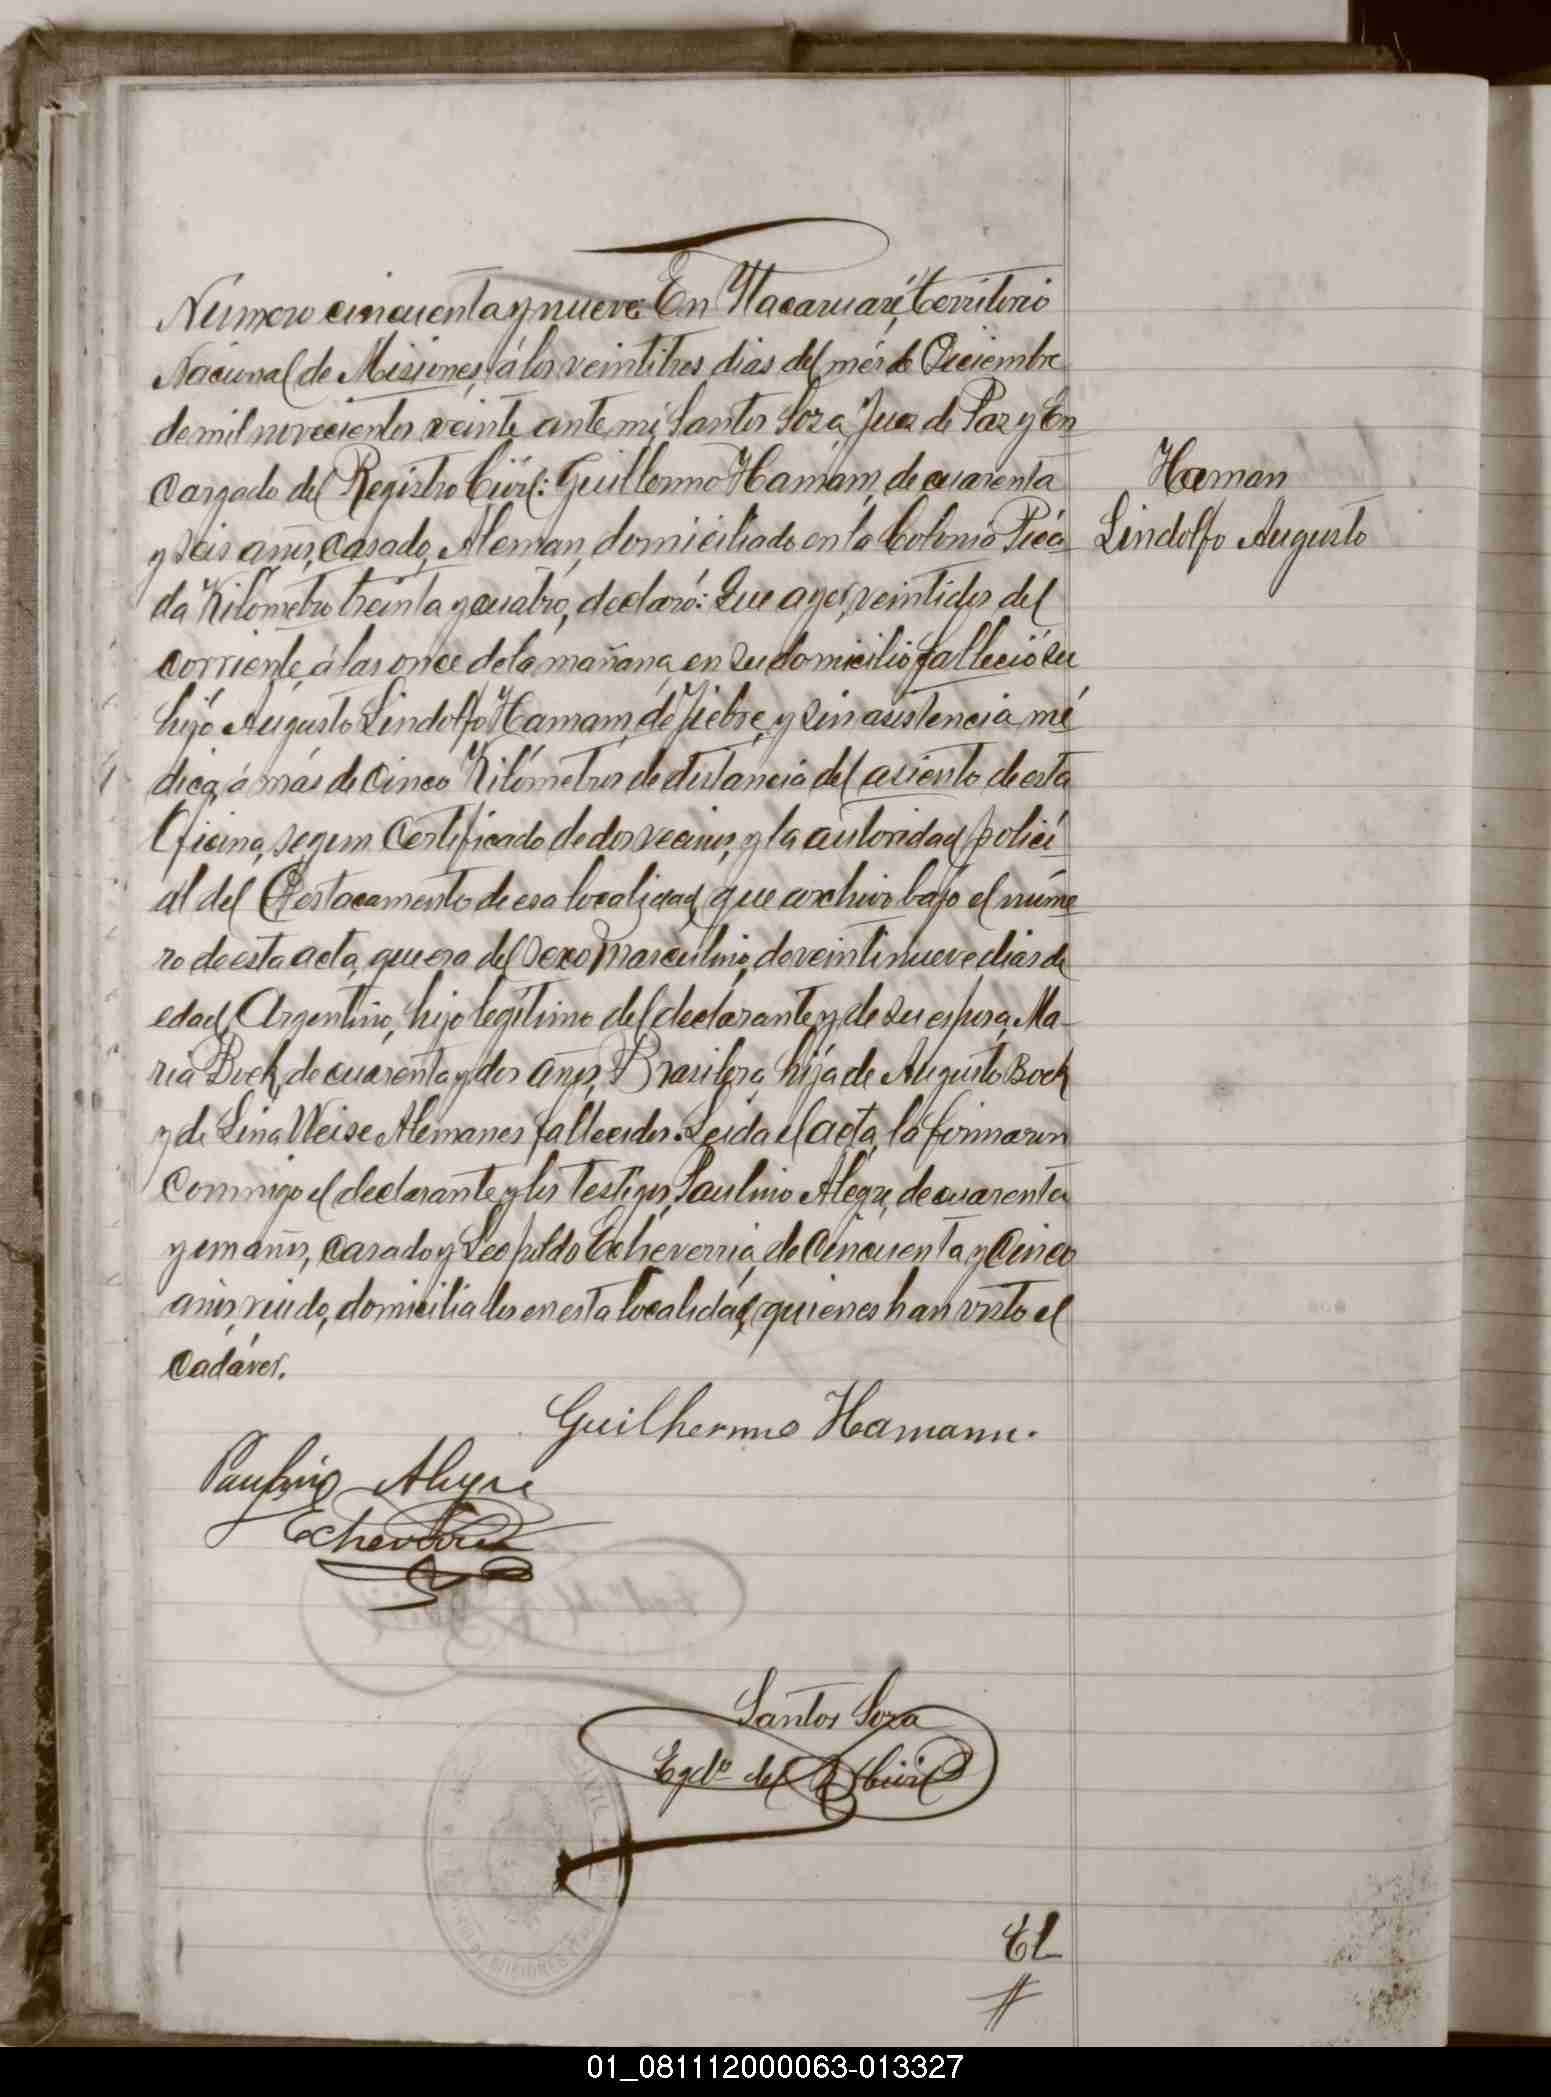 Número cincuenta y nueve En Itacaruaré, territorio
Nacional de Misiones, á los veintitres dias del més de Diciembre
de mil novecientos veinte ante mi, Santos Soza, Juez de Paz y En
cargado del Registro Civil: Guillermo Hamam, de cuarenta
y seis años, casado, Aleman, domiciliado en la Colonia Pica
da Kilómetro treinta y cuatro, declaró: Que ayer, veintidos del
corriente, á las once de la mañana, en su domicilio falleció su
hijo Augusto Lindolfo Hamam, de fiebre, y sin asistencia mé
dica, á más de cinco Kilómetros de distancia del asiento de esta
Oficina, segun certificado de dos vecinos, y la autoridad polici
al del Destacamento de esa localidad, que archivo bajo el núme
ro de esta acta, que era del sexo masculino, de veintinueve dias de
edad, Argentino, hijo legítimo del declarante y de su esposa, Ma-
ria Bock, de cuarenta y dos años, Brasilera, hija de Augusto Bock
y de Lina Weise Alemanes fallecidos. Leida el acta, la firmaron
conmigo el declarante y los testigos, Paulino Alegre, de cuarenta
y un años, casado y Leopoldo Echeverria, de cincuenta y cinco
años, viudo, domiciliados en esta localidad, quienes han visto el
cadáver.
Haman
Lindolfo Augusto
Guilhermo Hamann.
Paulino Alegre
Echeverria
Santos Soza
Egdo del R Civil
El
01_081112000063-013327